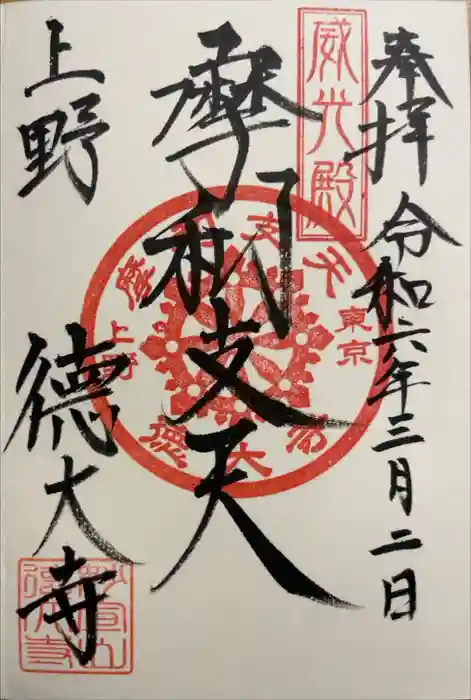 奉拝 令和六年三月二日
威光殿
摩利支天
摩利支天
東京
上野
徳大寺
上野 徳大寺